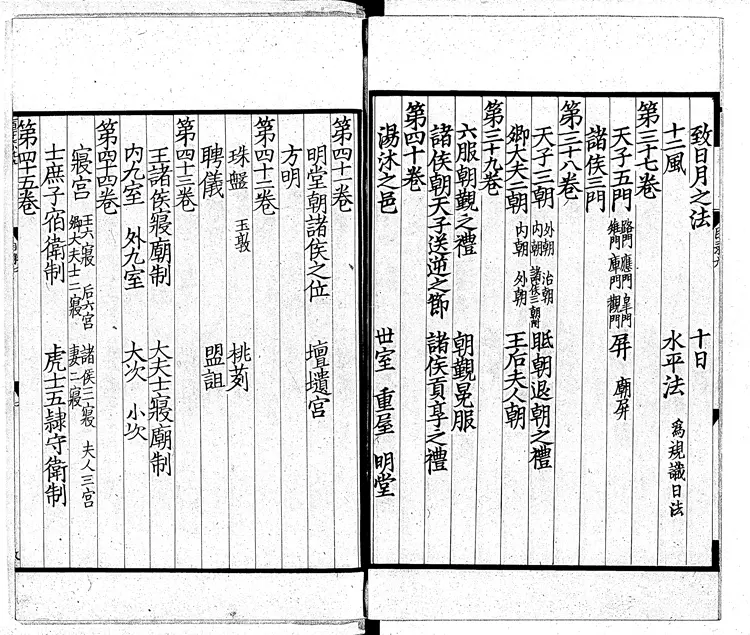 致日月之法 十日
十二風 水平法 為規識日法
第三十七卷
天子五門 路門 應門 皐門 雉門 庫門 觀門 屏 廟屏
諸侯三門
第三十八卷
天子三朝 外朝 治朝 內朝 諸侯三朝門 眡朝退朝之禮
卿大夫二朝 內朝 外朝 王后夫人朝
第三十九卷
六服朝覲之禮 朝覲冕服
諸侯朝天子送逆之節 諸侯貢享之禮
第四十卷
湯沐之邑 世室 重屋 明堂
第四十一卷
明堂朝諸侯之位 壇壝宮
方明
第四十二卷
珠盤 玉敦 桃茢
聘儀 盟詛
第四十三卷
王諸侯寢廟制 大夫士寢廟制
內九室 外九室 大次 小次
第四十四卷
寢宮 王六寢 后六宮 諸侯三寢 夫人三宮 卿大夫士二寢 妻二寢
士庶子宿衛制 虎士五隷守衛制
第四十五卷